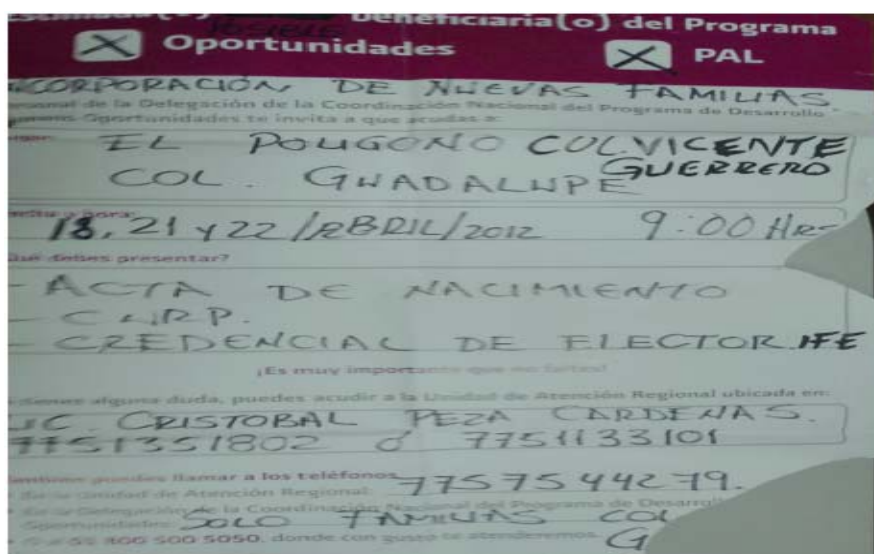 Beneficiaria(o) del Programa
POSIBLE
Oportunidades PAL
INCORPORACIÓN DE NUEVAS FAMILIAS
Personal de la Delegación de la Coordinación Nacional del Programa de Desarrollo
Humano Oportunidades te invita a que acudas a:
EL POLIGONO COL. VICENTE
GUERRERO
COL. GUADALUPE
18, 21 y 22/ABRIL/2012 9:00 Hrs
debes presentar?
- ACTA DE NACIMIENTO
- CURP.
- CREDENCIAL DE ELECTOR IFE
¡Es muy importante que no faltes!
tienes alguna duda, puedes acudir a la Unidad de Atención Regional ubicada en:
LIC. CRISTOBAL PEZA CARDENAS.
7751351802 ó 7751133101
también puedes llamar a los teléfonos 7757544279.
de la Unidad de Atención Regional:
de la Delegación de la Coordinación Nacional del Programa de Desarrollo
Oportunidades: SOLO FAMILIAS COL
500 5050, donde con gusto te atenderemos. G